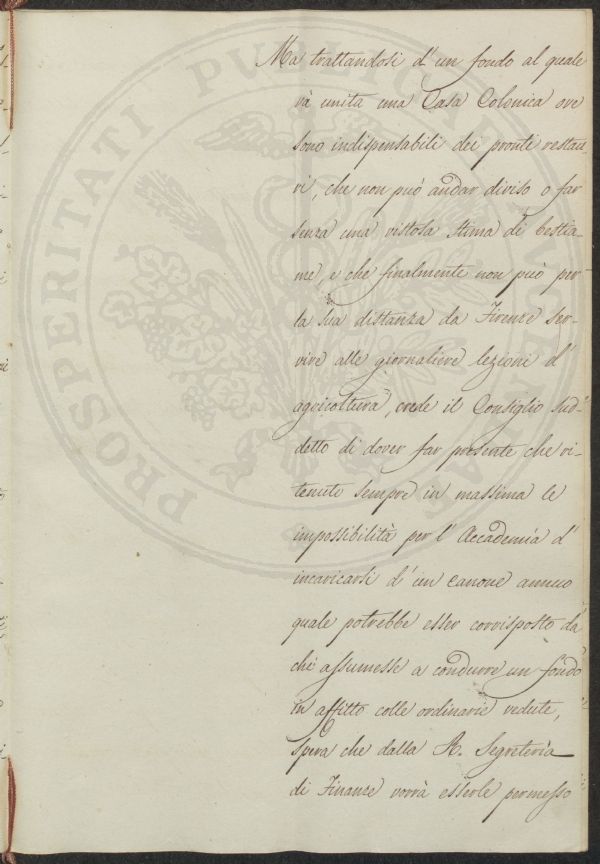 Ma trattandosi d'un fondo al quale
và unita una Casa Colonica ove
sono indispensabili dei pronti restau-
ri, che non può andar diviso o far
senza una vistosa stima di bestia-
me, e che finalmente non può per
la sua distanza da Firenze ser-
vire alle giornaliere lezioni d'
agricoltura, crede il Consiglio sud-
detto di dover far presente che ri-
tenute sempre in massima le
impossibilità per l'Accademia d'
incaricarsi d'un canone annuo
quale potrebbe esser corrisposto da
chi assumesse a condurre un fondo
in affitto colle ordinarie vedute,
spera che dalla R. Segreteria
di Finanze vorrà esserle permesso
PROSPERITATI PUBLICAE AUGENDAE